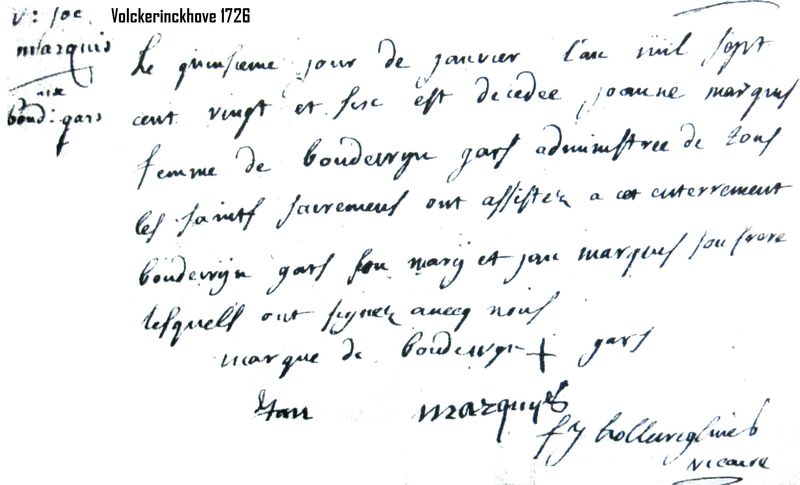 Volckerinckhove 1726
v: joe
marquis
uix
boud: gars
Le quinsieme jour de janvier l'an mil sept
cent vingt et sisc est decedee joanne marqus
femme de boudewyn gars administree de tous
les saints sacremens ont assistez a cet enterrement
boudewyn gars son mary et jan marqus son frere
lesquells ont signez avecq nous
marque de boudewyn + gars
Jan marquys
f J
vicaire